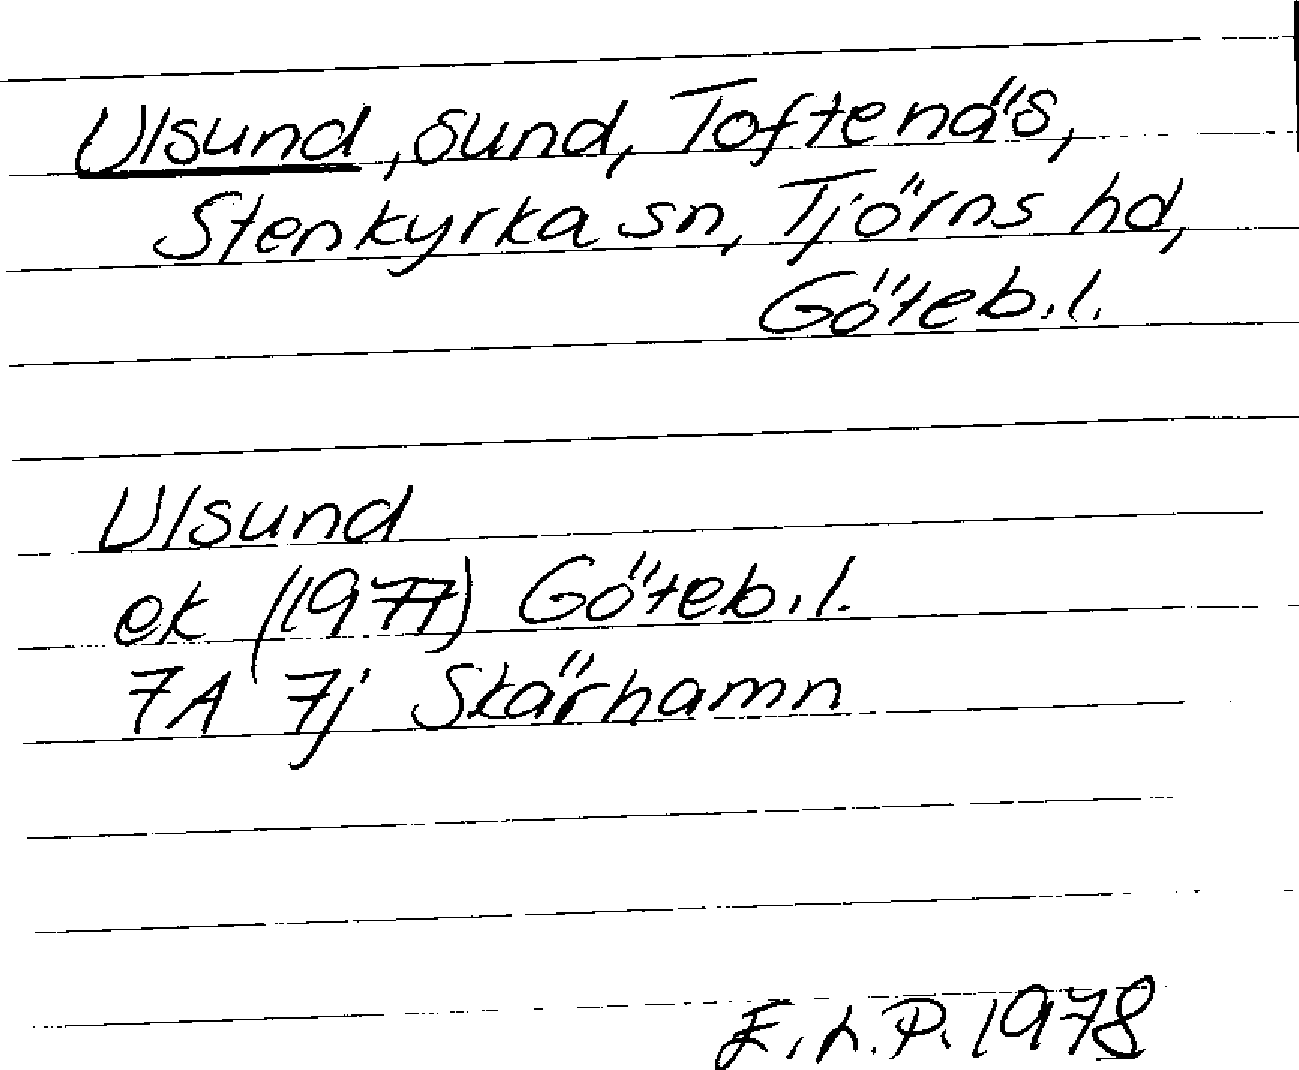 Ulsund, sund, Toftenäs,
Stenkyrka sn, Tjörns hd,
Göteb.l.
Ulsund
ek (1977) Göteb.l.
7A 7j Skärhamn
E.h.P. 1978